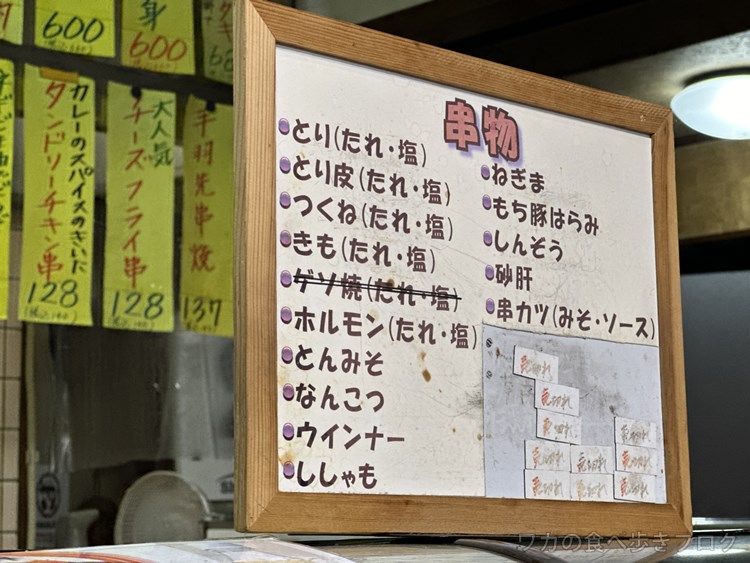 600
(税込660)
身
600
(税込660)
カレーのスパイスのきいた
タンドリーチキン串
128
(税込140)
大人気
チーズフライ串
128
(税込140)
手羽先串焼
137
串物
とり(たれ・塩)
とり皮(たれ・塩)
つくね(たれ・塩)
きも(たれ・塩)
ゲソ焼(たれ・塩)
ホルモン(たれ・塩)
とんみそ
なんこつ
ウインナー
ししゃも
ねぎま
もち豚はらみ
しんぞう
砂肝
串カツ(みそ・ソース)
売切れ
売切れ
売切れ
売切れ
売切れ
売切れ
売切れ
売切れ
売切れ
売切れ
ワカの食べ歩きブログ